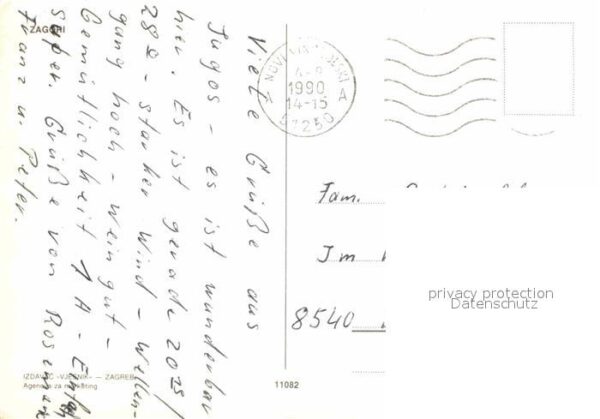 ZAGORI
Viele Grüße aus
Jugos - es ist wunderbar
hier. Es ist gerade 2025/
28° - starker Wind - Wellen-
gang hoch - Wein gut -
Gemütlichkeit 1A - Essen
super. Grüße von
Franz u. Peter.
NOVI
4-8
1990
14-15
A
57250
Fam.
Im
8540
privacy protection
Datenschutz
IZDAVAČ »VJESNIK« — ZAGREB
Agencija za marketing
11082